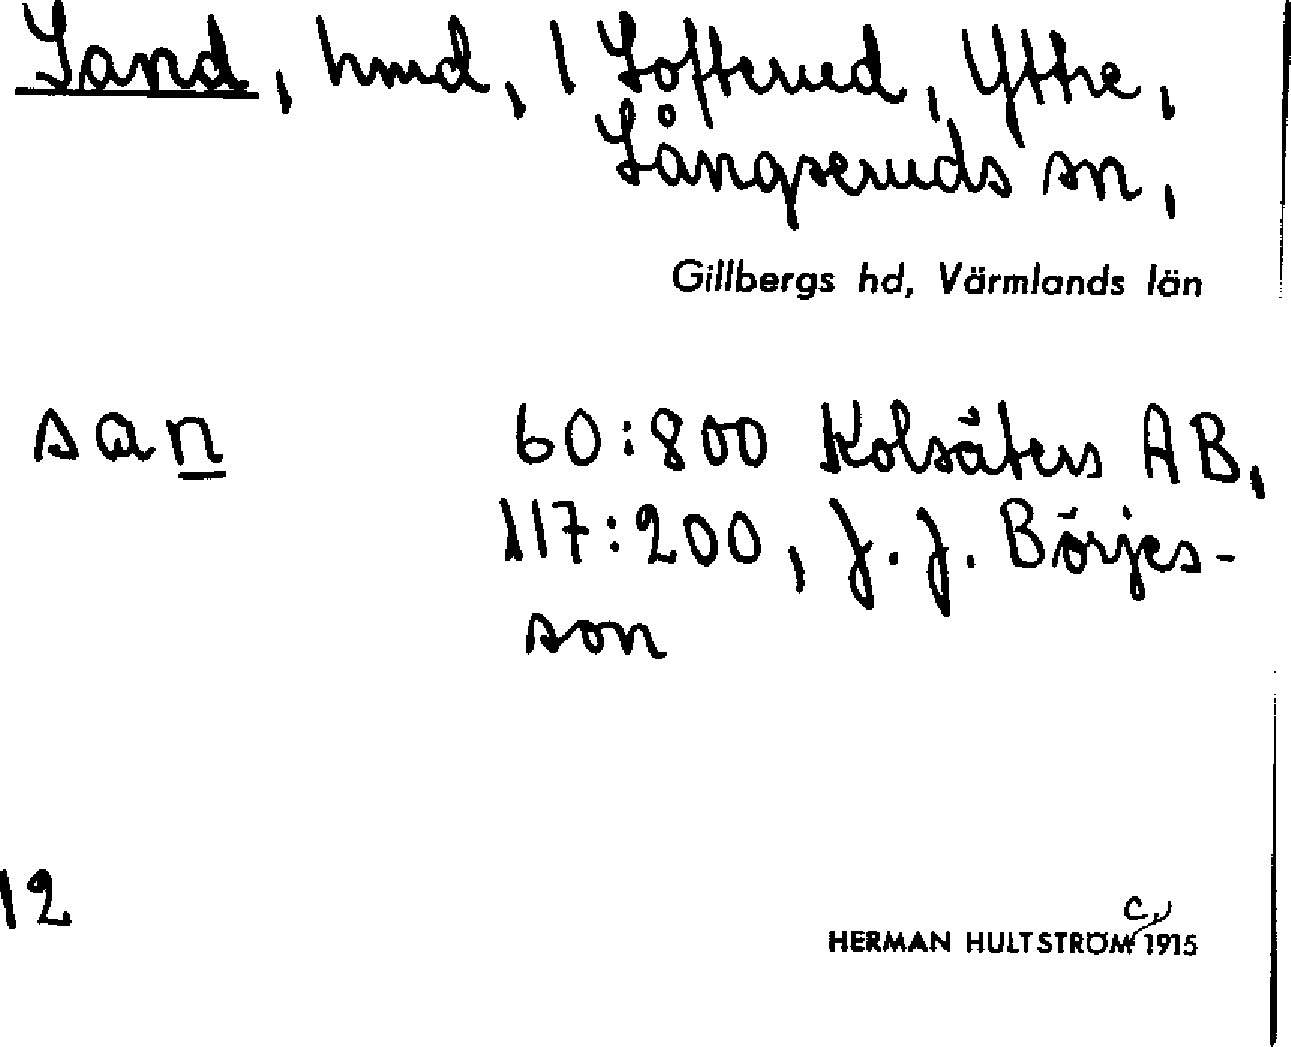 Sand, hmd, 1 Lofterud, Yttre,
Långseruds sn,
Gillbergs hd, Värmlands län
san 60:800 Kolsäters AB,
117:200, J. J. Börjes-
son
12
c.
HERMAN HULTSTRÖM 1915